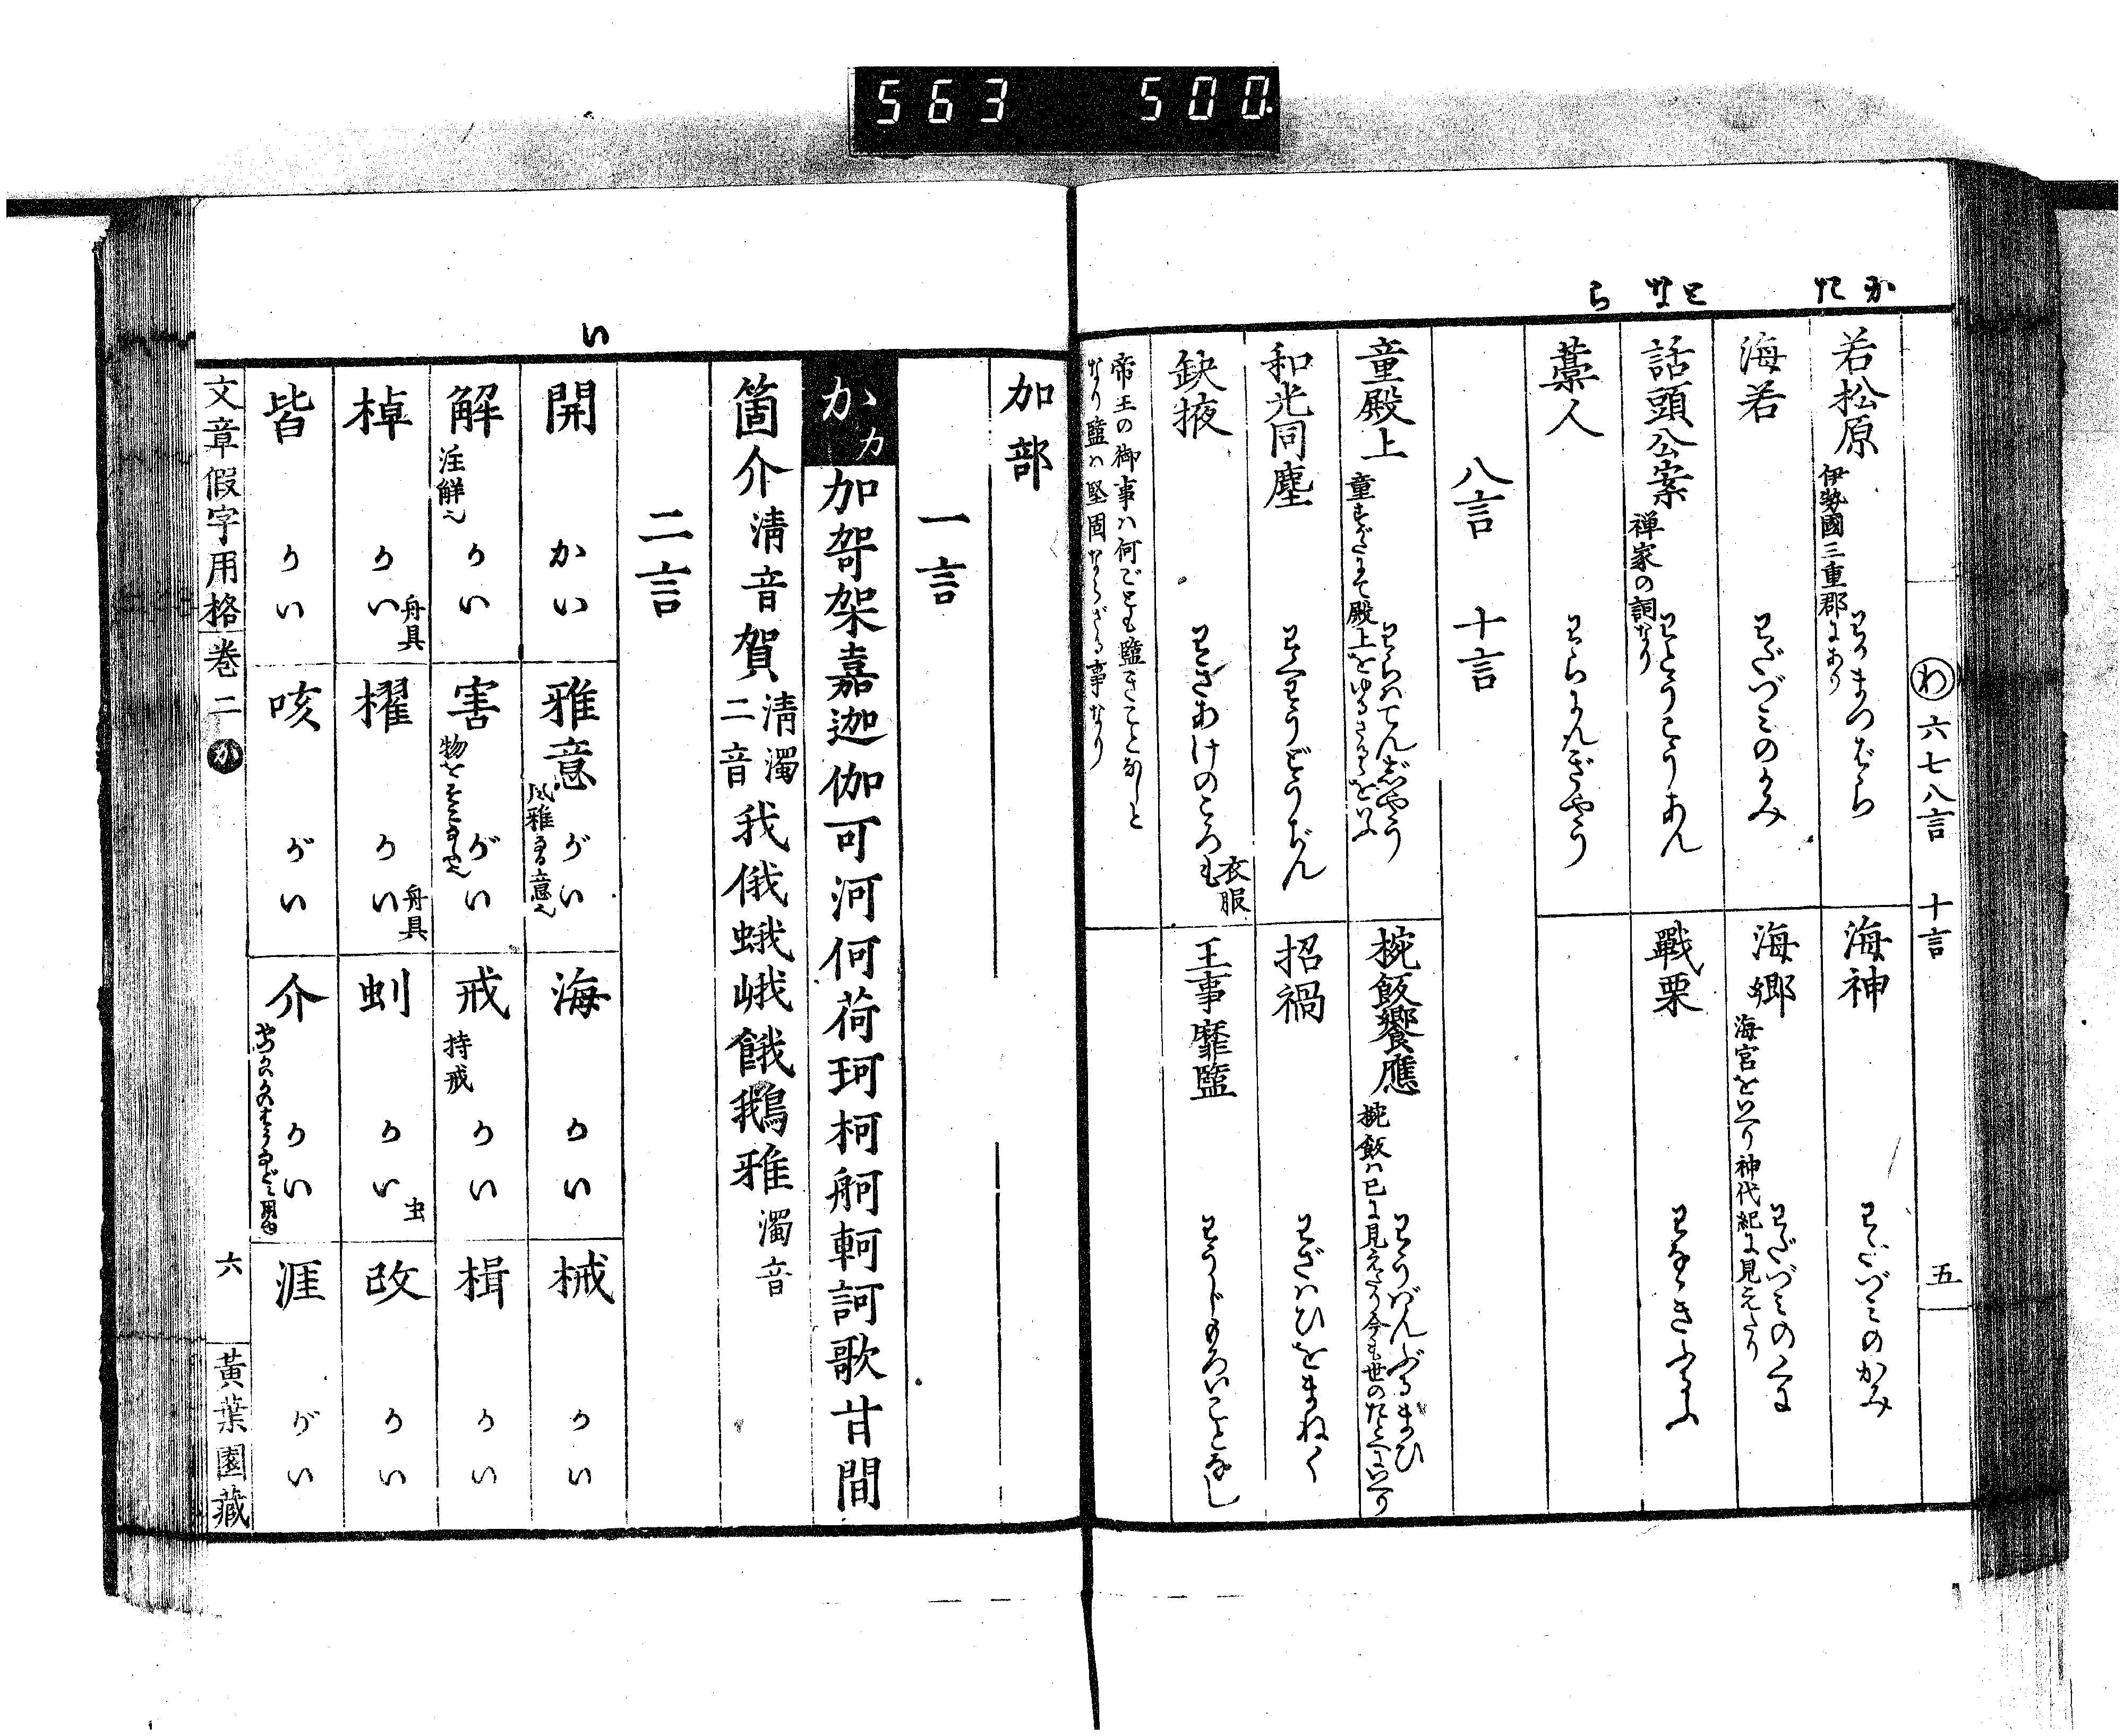 563 500
わ 六七八言 十言 五
か た
と な
ら
若松原 伊勢國三重郡にあり わかまつばら
海神 わだづみのかみ
海若 わだづみのかみ
海郷 海宮をいへり神代紀に見えたり わだづみのくに
話頭公案 禅家の詞なり わとうこうあん
戰栗 わなゝきふるふ
藁人 わらにんぎやう
八言 十言
童殿上 わらはてんじやう
椀飯饗應 わうばんぶるまひ
和光同塵 わくわうどうぢん
招禍 わざはひをまねく
缺掖 わきあけのころも 衣服
王事靡盬 わうじもろいことなし
帝王の御事ハ何ごとも盬きことなしと
なり盬ハ堅固ならざる事なり
加部
一言
か カ 加哿架嘉迦伽可河何荷珂柯舸軻訶歌甘間
箇介 清音 賀 清濁二音 我俄蛾峨餓鵝雅 濁音
二言
い
開 かい
雅意 風雅なる意也 がい
海 かい
械 かい
解 注解也 かい
害 がい
戒 持戒 かい
楫 かい
棹 かい 舟具
櫂 かい 舟具
蚓 かい 虫
改 かい
皆 かい
咳 がい
介 かい
涯 がい
文章假字用格 巻二 か 六 黄葉園藏